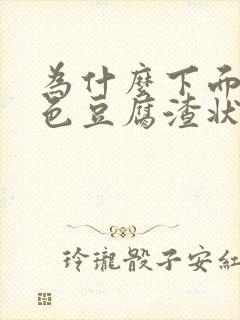 为什麼下面
色豆腐渣状
玲瓏骰子安紅